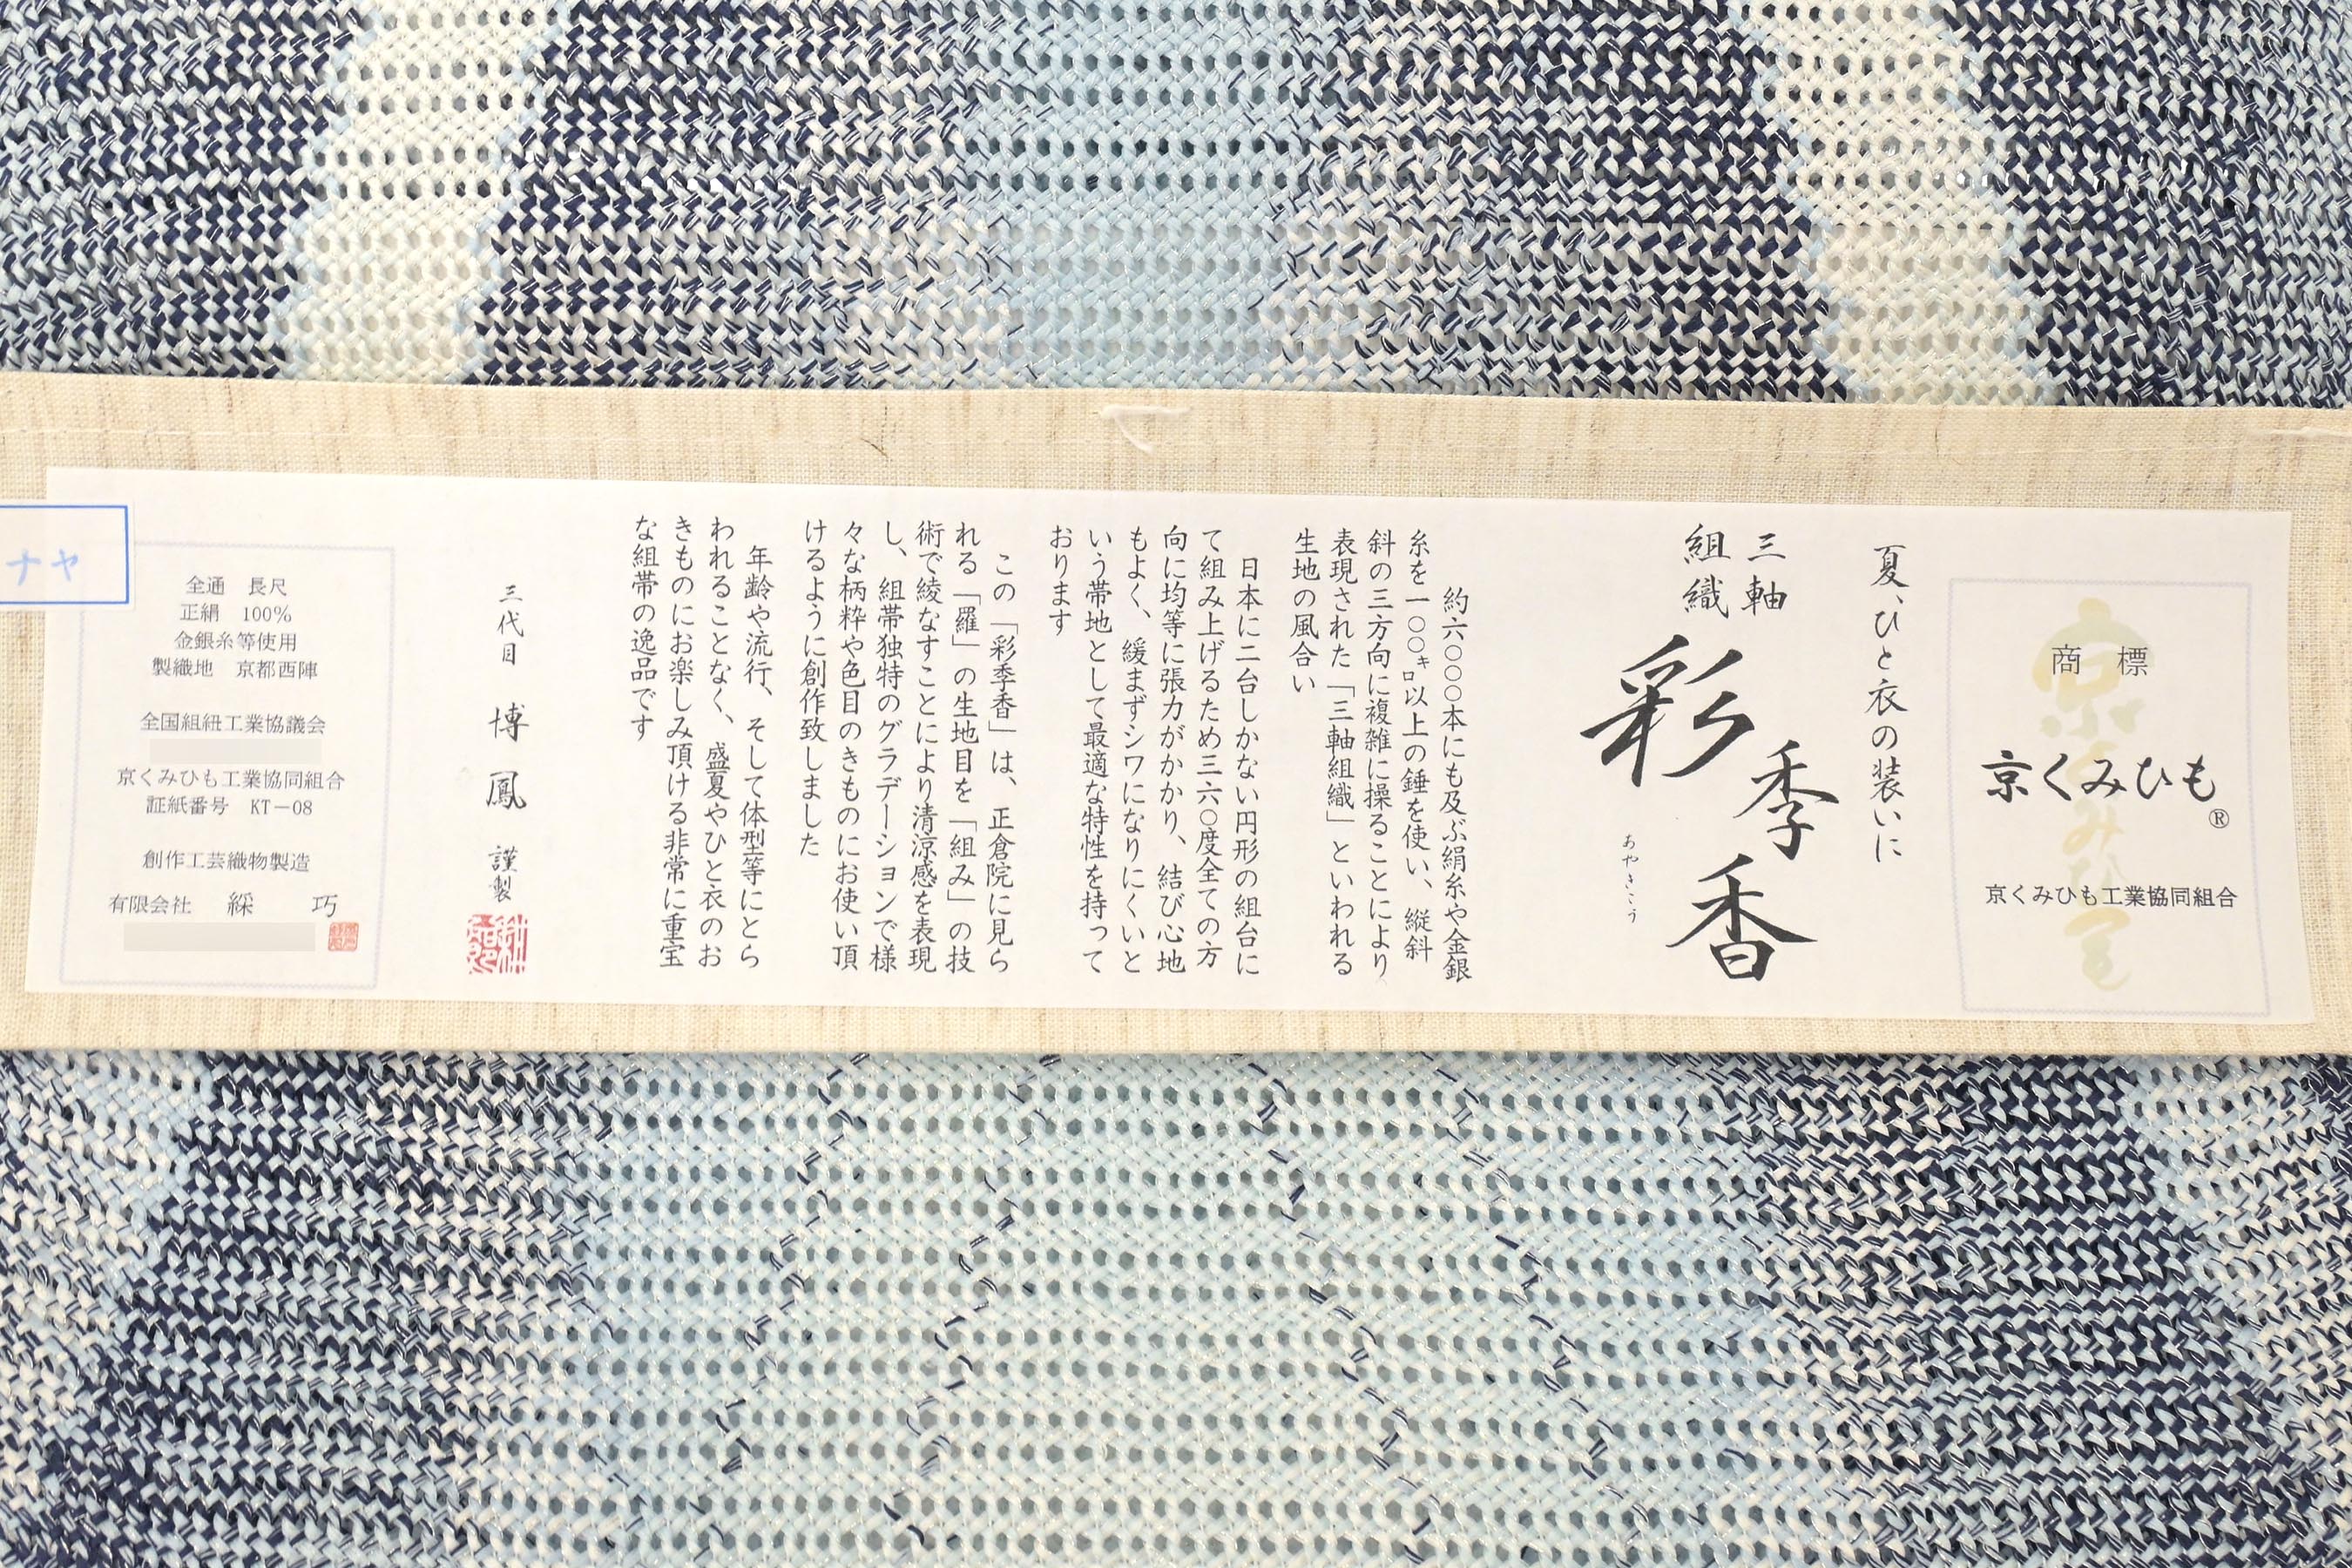 商標
京くみひも
®
京くみひも工業協同組合
夏、ひと衣の装いに
三軸
組織
彩季香
あやきこう
約六〇〇〇本にも及ぶ絹糸や金銀
糸を一〇〇㌔以上の錘を使い、縦斜
斜の三方向に複雑に操ることにより
表現された「三軸組織」といわれる
生地の風合い
日本に二台しかない円形の組台に
て組み上げるため三六〇度全ての方
向に均等に張力がかかり、結び心地
もよく、緩まずシワになりにくいと
いう帯地として最適な特性を持って
おります
この「彩季香」は、正倉院に見ら
れる「羅」の生地目を「組み」の技
術で綾なすことにより清涼感を表現
し、組帯独特のグラデーションで様
々な柄粋や色目のきものにお使い頂
けるように創作致しました
年齢や流行、そして体型等にとら
われることなく、盛夏やひと衣のお
きものにお楽しみ頂ける非常に重宝
な組帯の逸品です
三代目 博鳳 謹製
全通 長尺
正絹 100%
金銀糸等使用
製織地 京都西陣
全国組紐工業協議会
京くみひも工業協同組合
証紙番号 KT-08
創作工芸織物製造
有限会社 綵巧
ナヤ